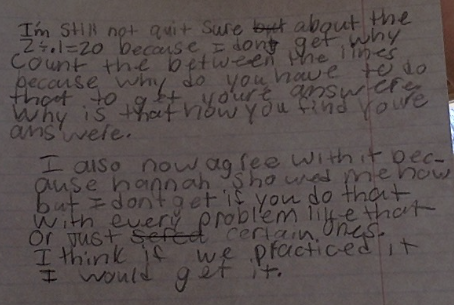 I'm still not quit sure but about the
2÷.1=20 because I dont get why
count the between the lines
because why do you have to do
that to get youre answere
Why is that how you find youre
answere.
I also now agree with it bec-
ause hannah showed me how
but I dont get is you do that
with every problem like that
Or just certain ones.
I think if we practiced it
I would get it.